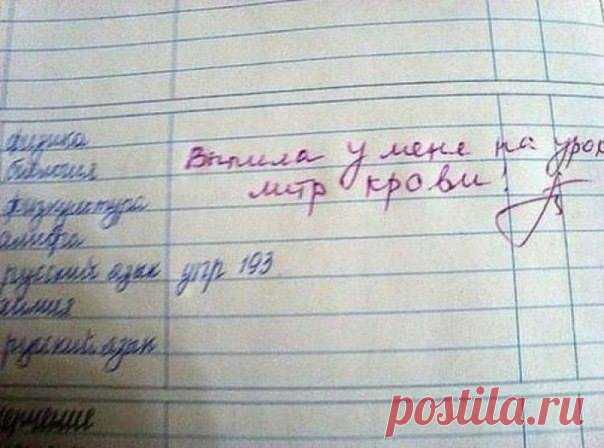 физика
биология
Выпила у меня на урок
литр крови!
физкультура
алгебра
русский язык упр 193
химия
русский язык
черчение
postila.ru